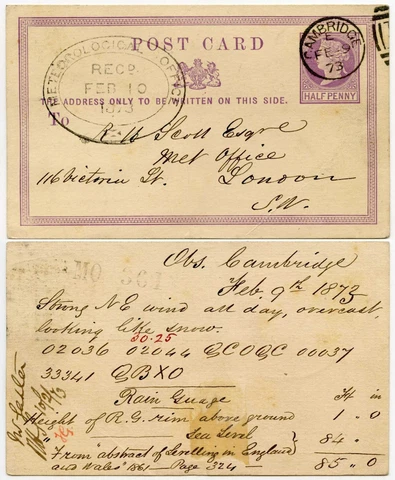 POST CARD
CAMBRIDGE
E
FE 9
73
METEOROLOGICAL OFFICE
RECD
FEB 10
1873
THE ADDRESS ONLY TO BE WRITTEN ON THIS SIDE.
HALF PENNY
To
R H Scott Esqre
Met Office
116 Victoria St. London
S.W.
Obs. Cambridge
Feb. 9th 1873
Strong NE wind all day, overcast,
looking like snow.
30.25
02036 02044 GCOGC 00037
33341 GBXO
Rain Guage
Ft in
Height of R.G. rim above ground 1 " 0
" Sea Level 84 "
From "abstract of Levelling in England
and Wales" 1861 — Page 324 — 85 " 0